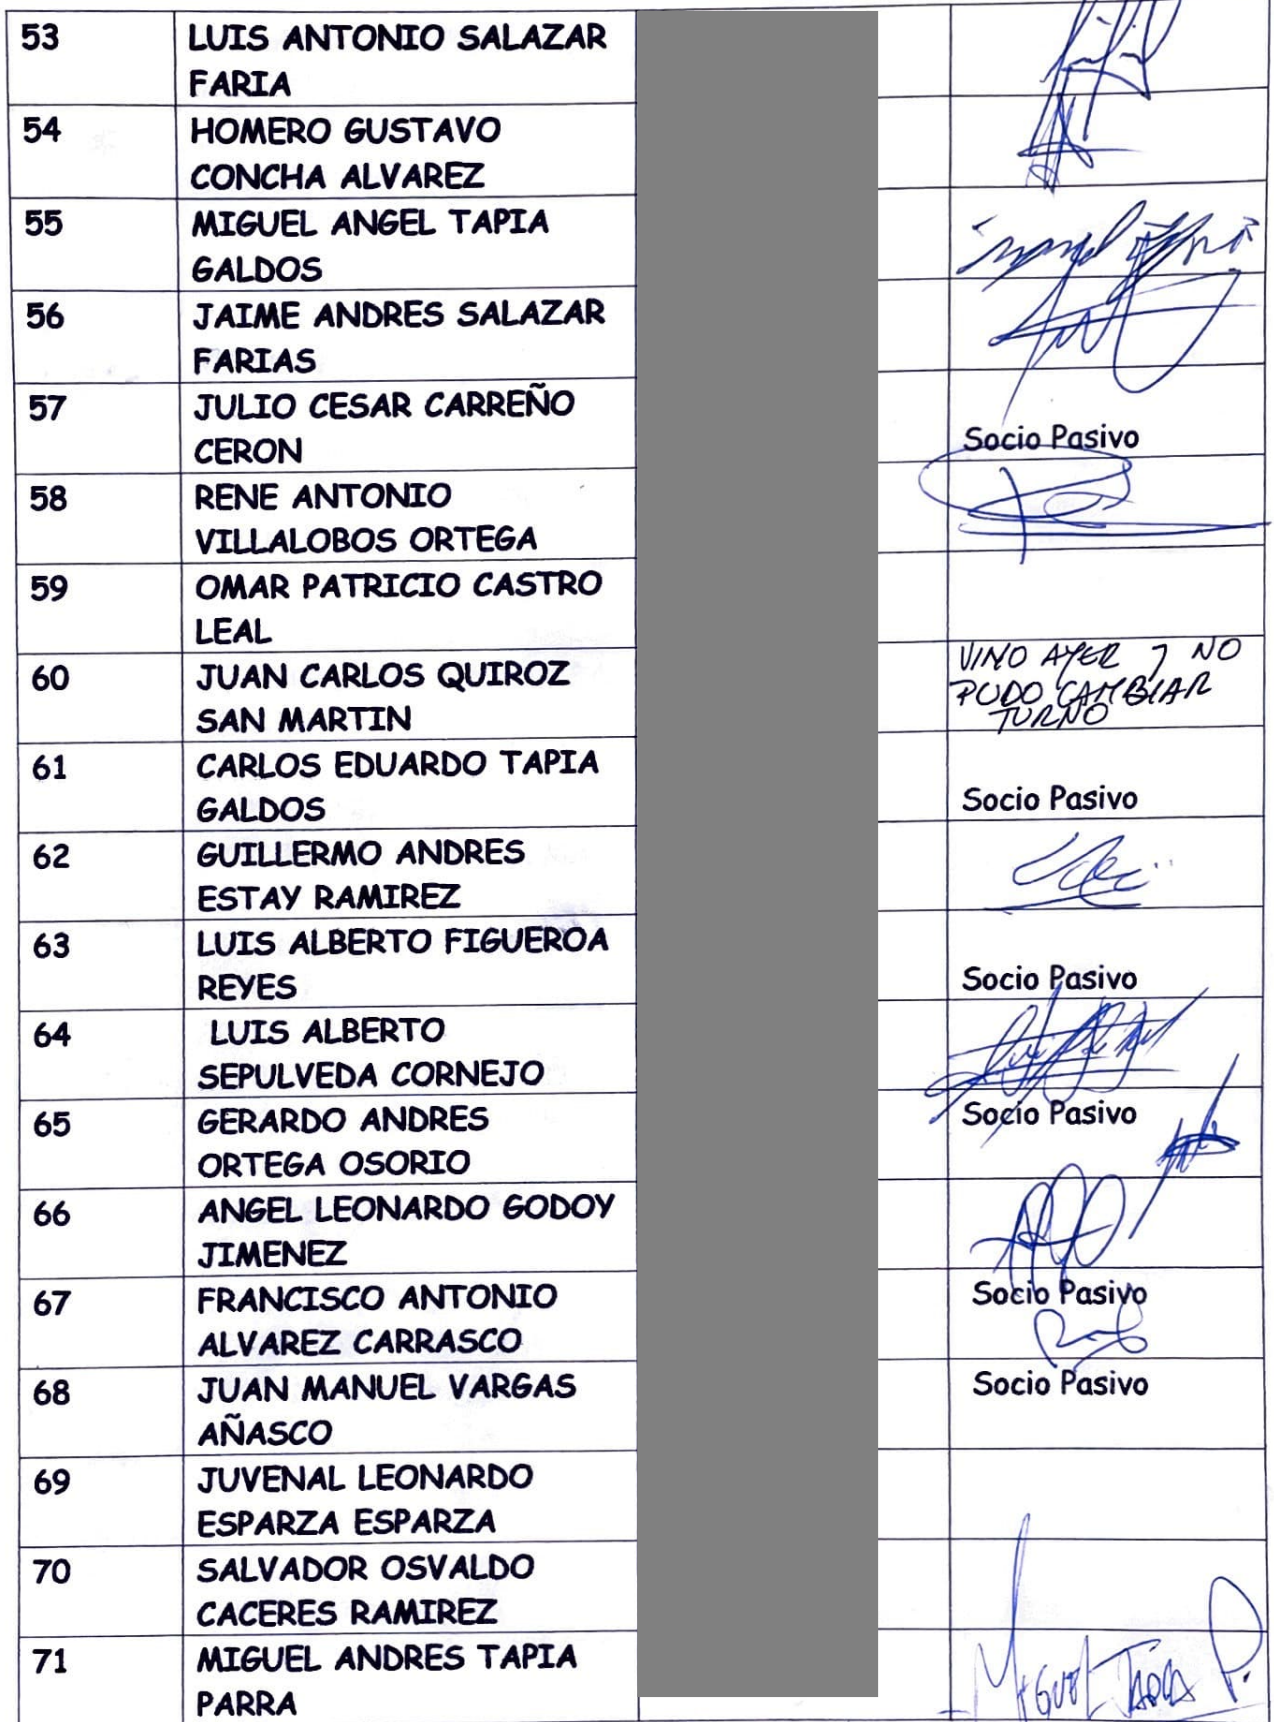 53 LUIS ANTONIO SALAZAR
FARIA
54 HOMERO GUSTAVO
CONCHA ALVAREZ
55 MIGUEL ANGEL TAPIA
GALDOS
56 JAIME ANDRES SALAZAR
FARIAS
57 JULIO CESAR CARREÑO
CERON Socio Pasivo
58 RENE ANTONIO
VILLALOBOS ORTEGA
59 OMAR PATRICIO CASTRO
LEAL
60 JUAN CARLOS QUIROZ
SAN MARTIN
VINO AYER Y NO
PUDO CAMBIAR
TURNO
61 CARLOS EDUARDO TAPIA
GALDOS Socio Pasivo
62 GUILLERMO ANDRES
ESTAY RAMIREZ
63 LUIS ALBERTO FIGUEROA
REYES Socio Pasivo
64 LUIS ALBERTO
SEPULVEDA CORNEJO
65 GERARDO ANDRES Socio Pasivo
ORTEGA OSORIO
66 ANGEL LEONARDO GODOY
JIMENEZ
67 FRANCISCO ANTONIO Socio Pasivo
ALVAREZ CARRASCO
68 JUAN MANUEL VARGAS Socio Pasivo
AÑASCO
69 JUVENAL LEONARDO
ESPARZA ESPARZA
70 SALVADOR OSVALDO
CACERES RAMIREZ
71 MIGUEL ANDRES TAPIA
PARRA Miguel Tapia P.